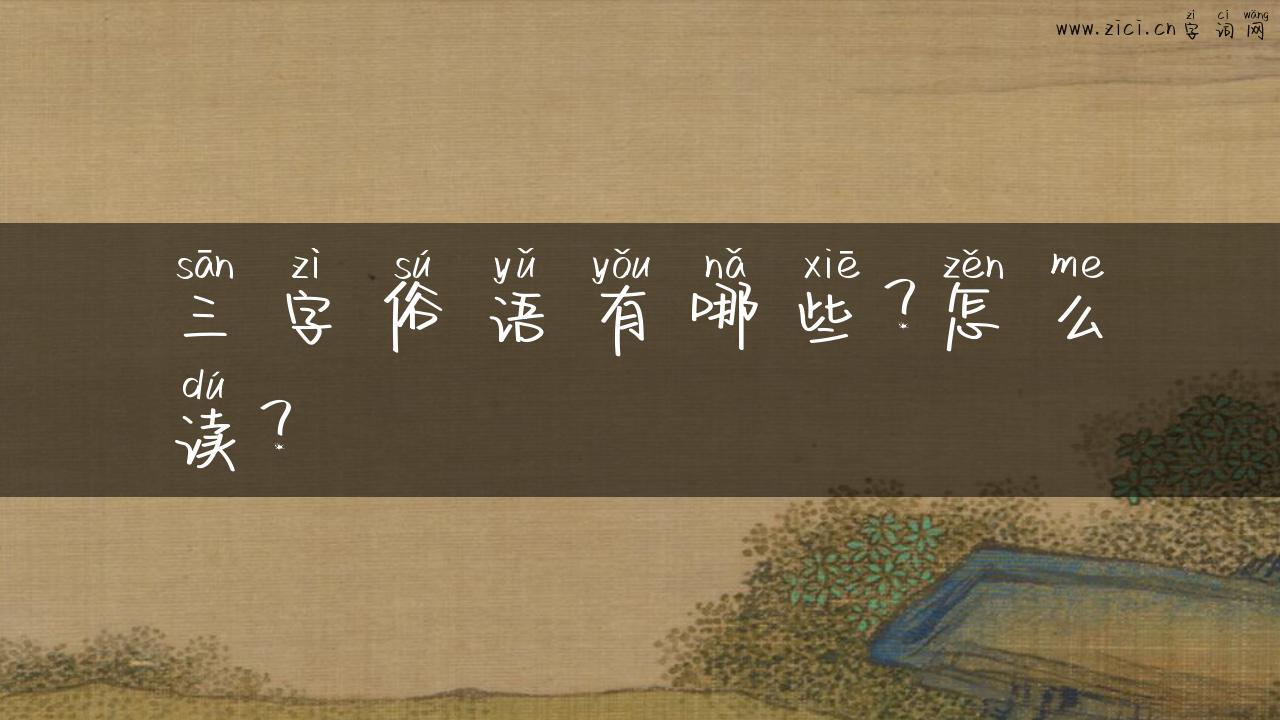 zì cí wǎng
www.zici.cn 字词网
sān zì sú yǔ yǒu nǎ xiē zěn me
三字俗语有哪些?怎么
dú
读?